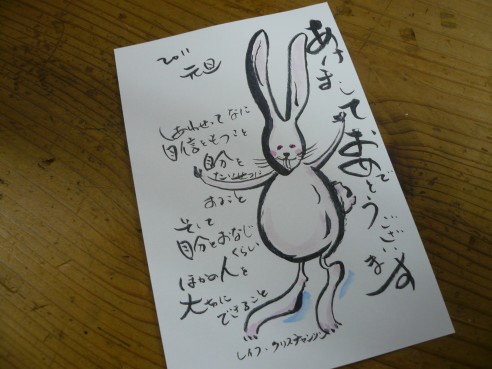 あけましておめでとうございます
元旦
しあわせってなに
自信をもつこと
自分を
たいせつに
すること
そして
自分とおなじ
くらい
ほかの人を
大切に
できること
レイフ・クリスチャンソン